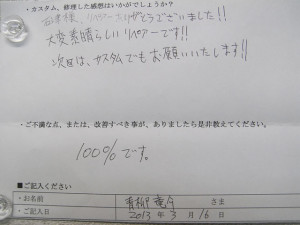 ・カスタム、修理した感想はいかがでしょうか?
様、リペアーありがとうございました!!
大変素晴らしいリペアーです!!
次回は、カスタムでもお願いいたします!!
・ご不満な点、または、改善すべき事が、ありましたら是非教えてください。
100%です。
■ご記入ください
・お名前 さま
・ご記入日 2013年3月16日